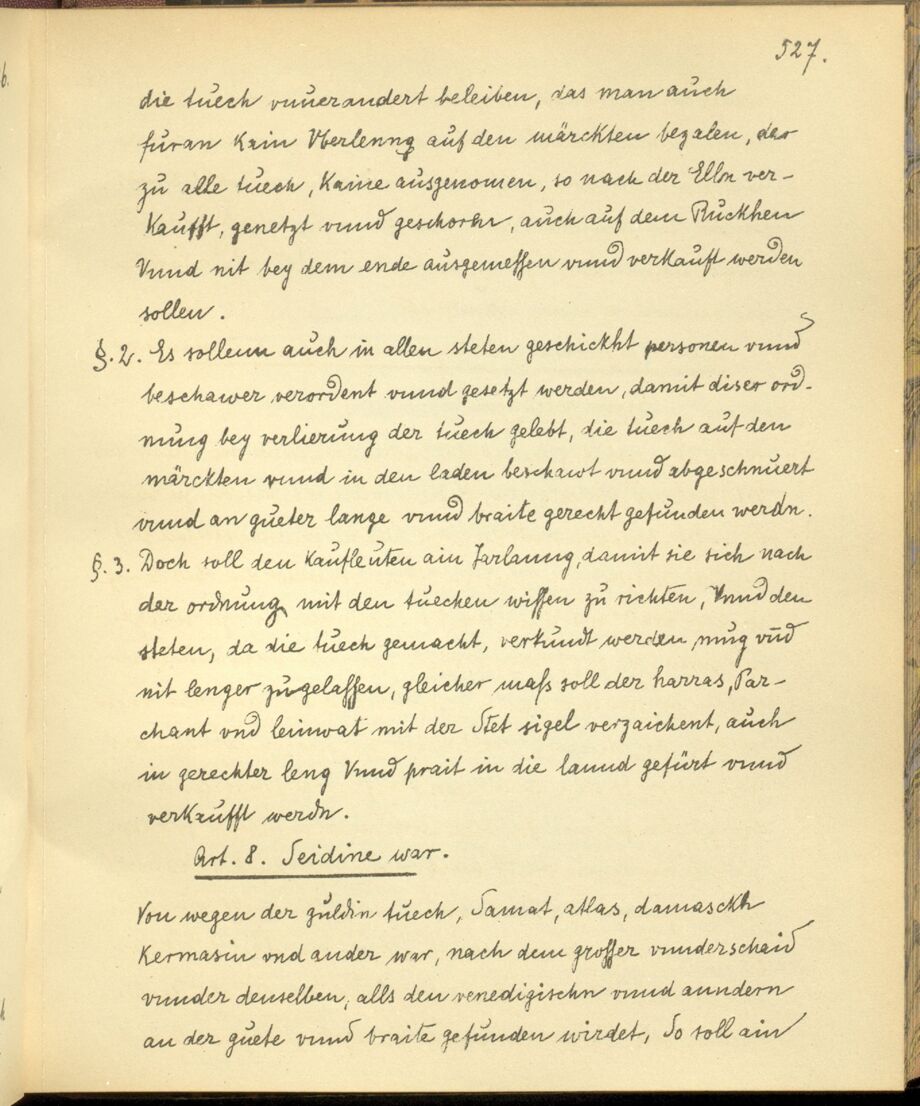 527.
die tuech vnuerandert beleiben, das man auch
furan kain Vberlenng auf den märckten bezalen, der
zu alle tuech, kaine ausgenomen, so nach der Elln ver-
kaufft, genetzt vnnd geschorn, auch auf dem Ruckhen
Vnnd nit bey dem ende ausgemessen vnnd verkauft werden
sollen.
§. 2. Es sollenn auch in allen steten geschickht personen vnnd
beschawer verordent vnnd gesetzt werden, damit diser ord-
nung bey verlierung der tuech gelebt, die tuech auf den
märckten vnnd in den laden beschawt vnnd abgeschnuert
vnnd an gueter lange vnnd braite gerecht gefunden werdn.
§. 3. Doch soll den kaufleuten ain Jarlanng, damit sie sich nach
der ordnung mit den tuechen wissen zu richten, Vnnd den
steten, da die tuech gemacht, verkundt werden mug vnd
nit lenger zugelassen, gleicher mass soll der harras, Par-
chant vnd leinwat mit der Stet sigel verzaichent, auch
in gerechter leng Vnnd prait in die lannd gefürt vnnd
verkaufft werdn.
Art. 8. Seidine war.
Von wegen der guldin tuech, Samat, atlas, damasckh
Kermasin vnd ander war, nach dem grosser vnnderschaid
vnnder denselben, alls den venedigischn vnnd anndern
an der guete vnnd braite gefunden wirdet, So soll ain